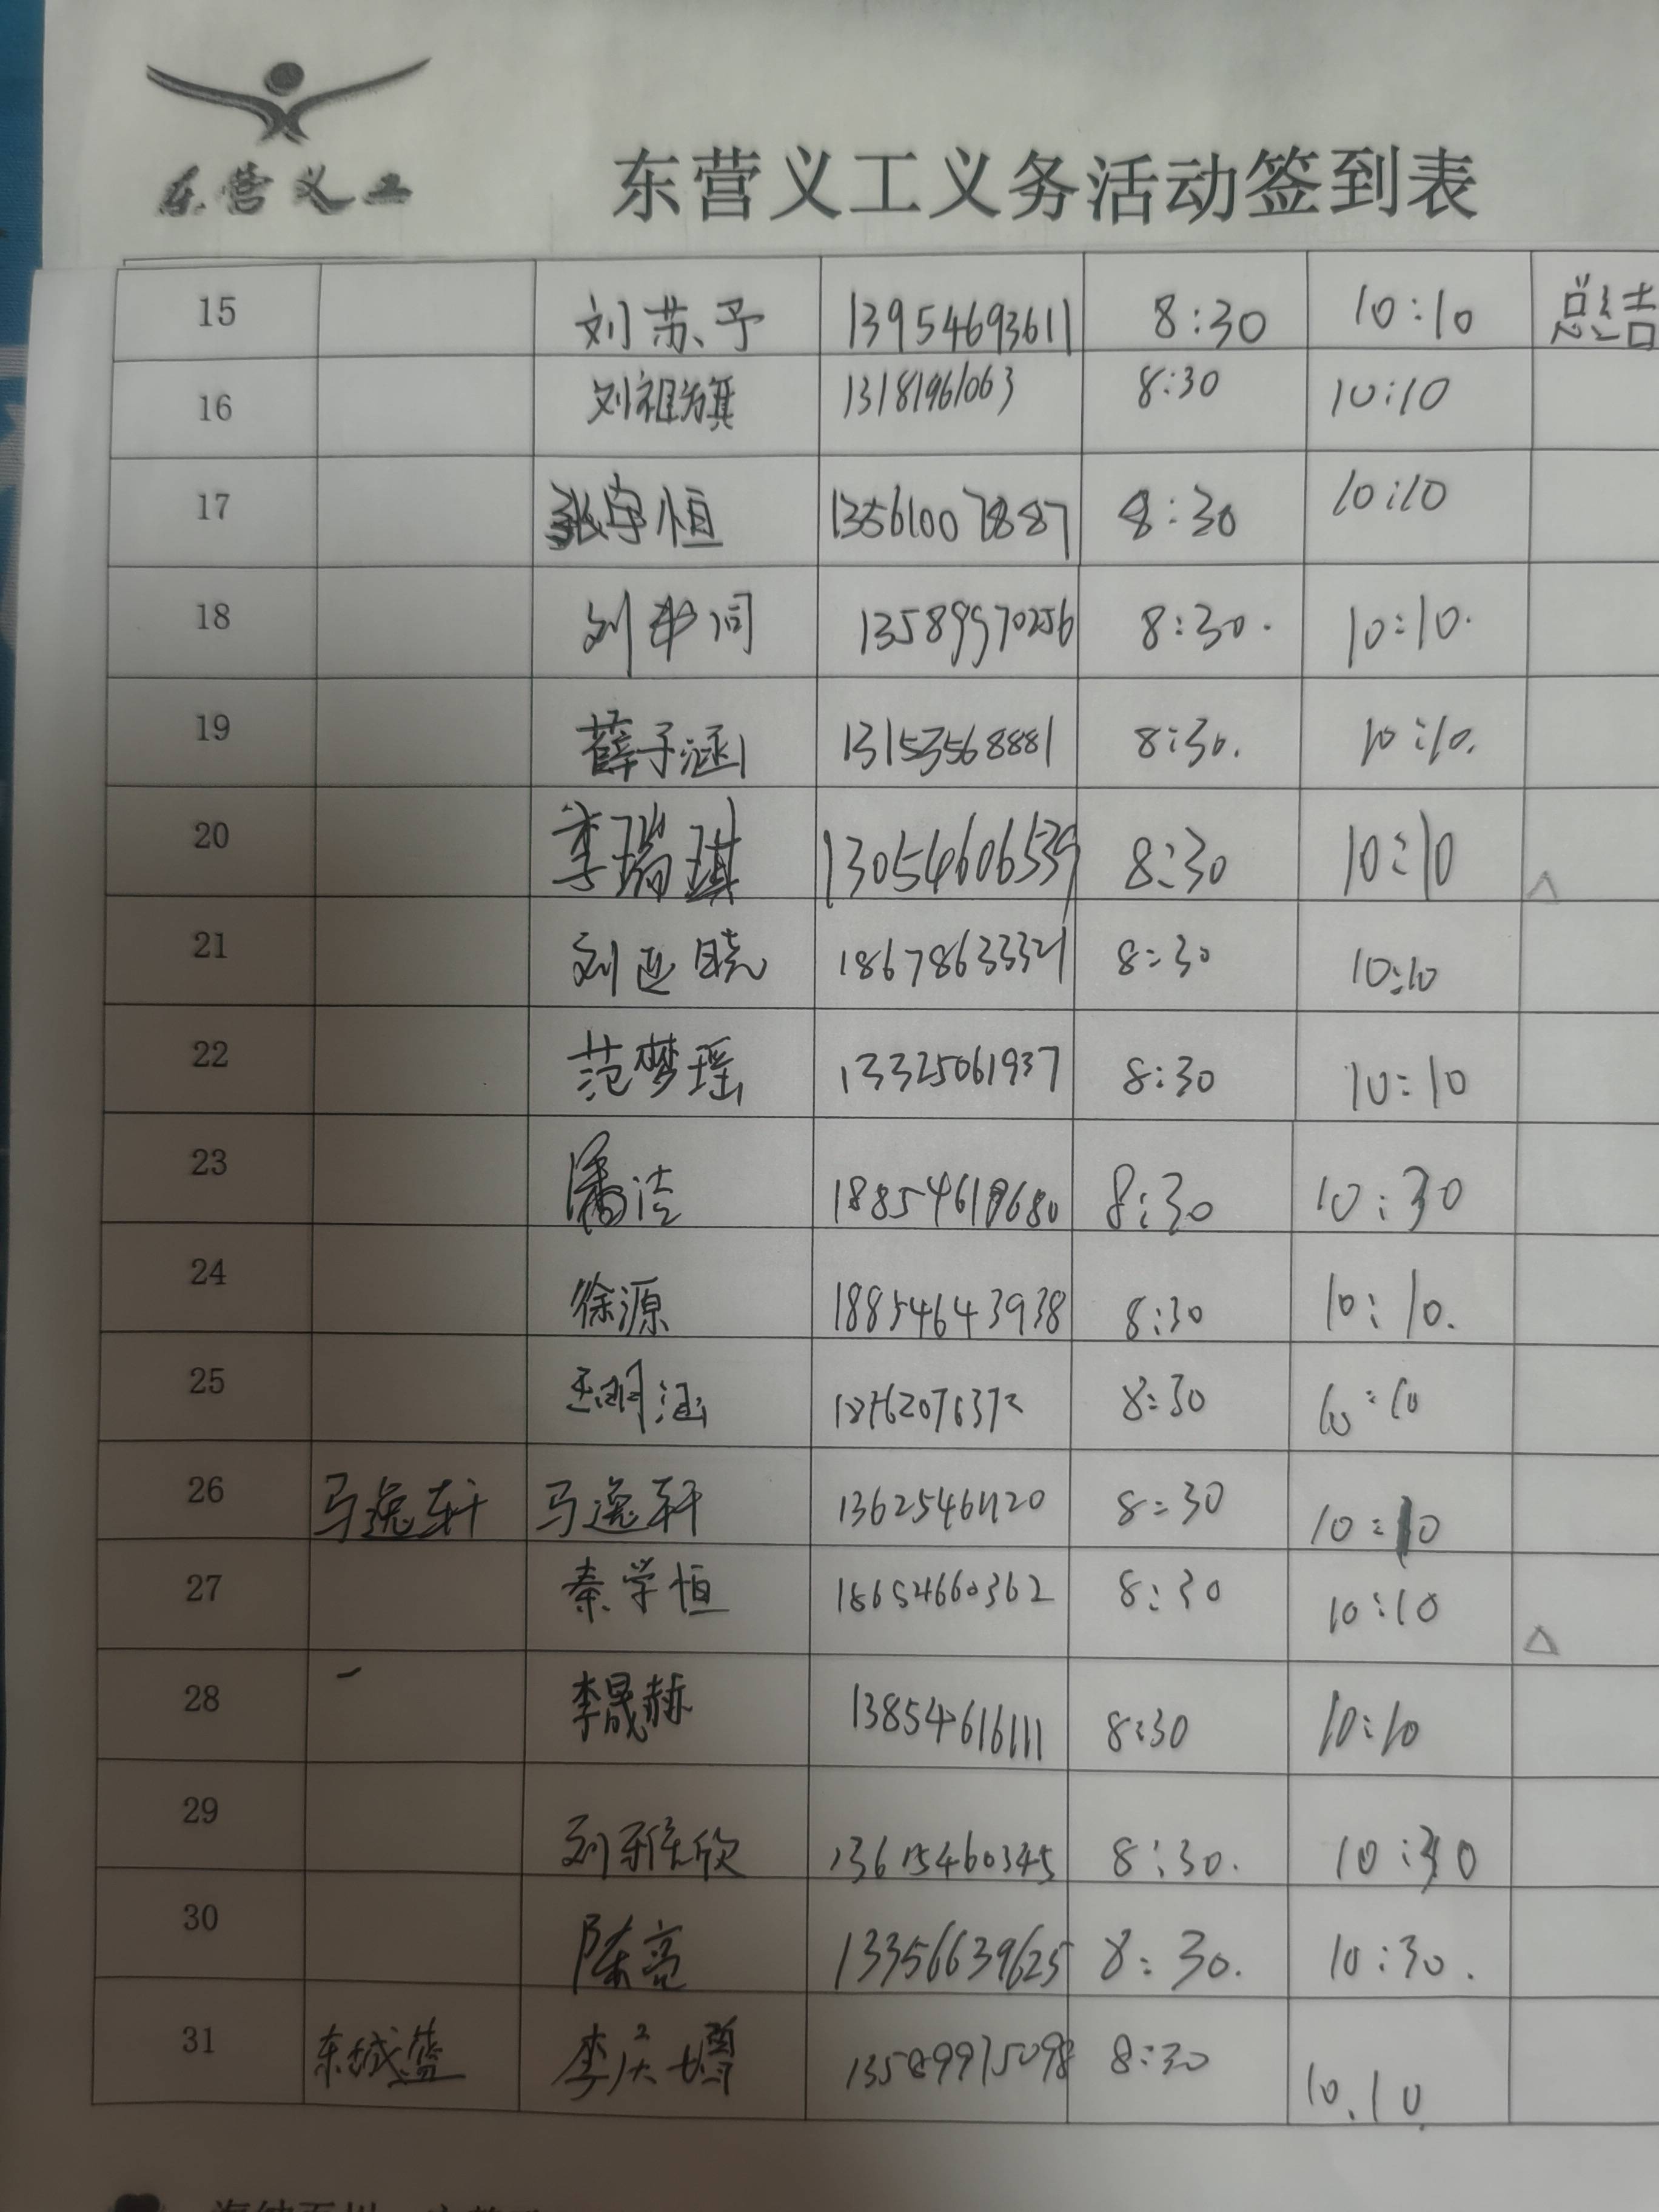 东营义工
东营义工义务活动签到表
15 刘苏予 13954693611 8:30 10:10 总结
16 刘祖 13181961063 8:30 10:10
17 张宇恒 13561007887 8:30 10:10
18 刘 同 13589970256 8:30. 10:10.
19 薛子涵 13153568881 8:30. 10:10.
20 李瑞琪 13054606539 8:30 10:10 △
21 刘 晓 18678633321 8:30 10:10
22 范梦瑶 13325061937 8:30 10:10
23 潘洁 8:30 10:30
24 徐源 18854643938 8:30 10:10.
25 涵 8:30 10:10
26 马逸轩 马逸轩 8:30 10:10
27 秦学恒 18654660362 8:30 10:10 △
28 李晟赫 13854616111 8:30 10:10
29 刘 欣 13615460345 8:30.
30 陈亮 13356639625 8:30. 10:30.
31 东城 李 8:30 10.10.